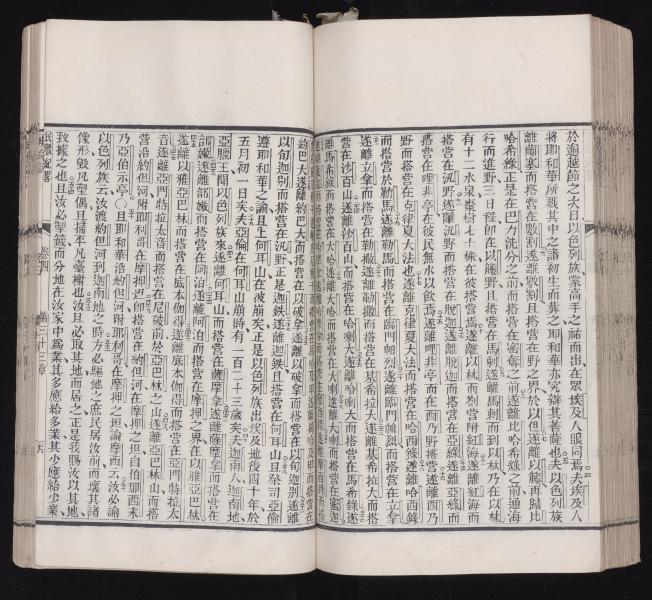 於逾越節之次日以色列族豪高手之祐而出在眾埃及人眼同焉夫埃及人
將耶和華所戮其中之諸初生而葬之耶和華亦究辦其菩薩也夫以色列族
離蘭塞而搭營在數割遂離數割且搭營在野之界於以但遂離以簾再歸比
哈希祿正是在巴力洗分之前而搭營在密奪之前遂離比哈希祿之前通海
行而進野三日程卽在以簾野且搭營在馬剌遂離馬剌而到以林乃在以林
有十二水泉棗樹七十株在彼搭營焉遂離以林而劄營附紅海遂離紅海而
搭營在汛野遂離汛野而搭營在脫迦遂離脫迦而搭營在亞綠遂離亞綠而
搭營在哩非亭在彼民無水以飲焉遂離哩非亭而在西乃野搭營遂離西乃
野而搭營在克律夏大法也遂離克律夏大法而搭營在哈西錄遂離哈西錄
而搭營於勒馬遂離勒馬而搭營在臨門帕烈遂離臨門帕烈而搭營在立拿
遂離立拿而搭營在勒撒遂離勒撒而搭營在基希拉大遂離基希拉大而搭
營在沙百山遂離沙百山而搭營在哈喇大遂離哈喇大而搭營在馬希錄遂
離馬希錄而搭營在大哈遂離大哈而搭營在大喇遂離大喇而搭營在密迦
約巴大遂離約巴大而搭營在以破拿遂離以破拿而搭營在以旬迦別遂離
以旬迦別而搭營在汛野正是迦鉄遂離迦鉄且搭營在何耳山且祭司亞倫
遵耶和華之諭且上何耳山在彼崩矣正是以色列族出埃及地後四十年於
五月初一日矣夫亞倫在何耳山崩時有一百二十三歲矣夫迦南人迦南地
亞臘王聞以色列族來遂離何耳山而搭營在薩摩拿遂離薩摩拿而搭營在
部嫩遂離部嫩而搭營在阿泊遂離阿泊而搭營在摩押之界在以雅亞巴林
遂離以雅亞巴林而搭營在底本伽得遂離底本伽得而搭營在亞門特拉太
音遂離亞門特拉太音而搭營在尼破前於亞巴林之山遂離亞巴林山而搭
營沿約但河附耶利哥在摩押迦卽搭營在約但河在摩押之坦自伯耶西末
乃亞伯示亭○且耶和華沿約但河附耶利哥在摩押之坦諭摩西云汝必諭
以色列族云汝渡約但河到迦南地之時方必驅地之庶民居汝前而壞其諸
像形毀凡塑偶且掃平凡臺樹也汝且必取其地而居之正是我賜汝以其地
致據之也且汝必掣籤而分地在汝家中為業其多應給多業其少應給少業
民數紀畧 卷四 第三十三章